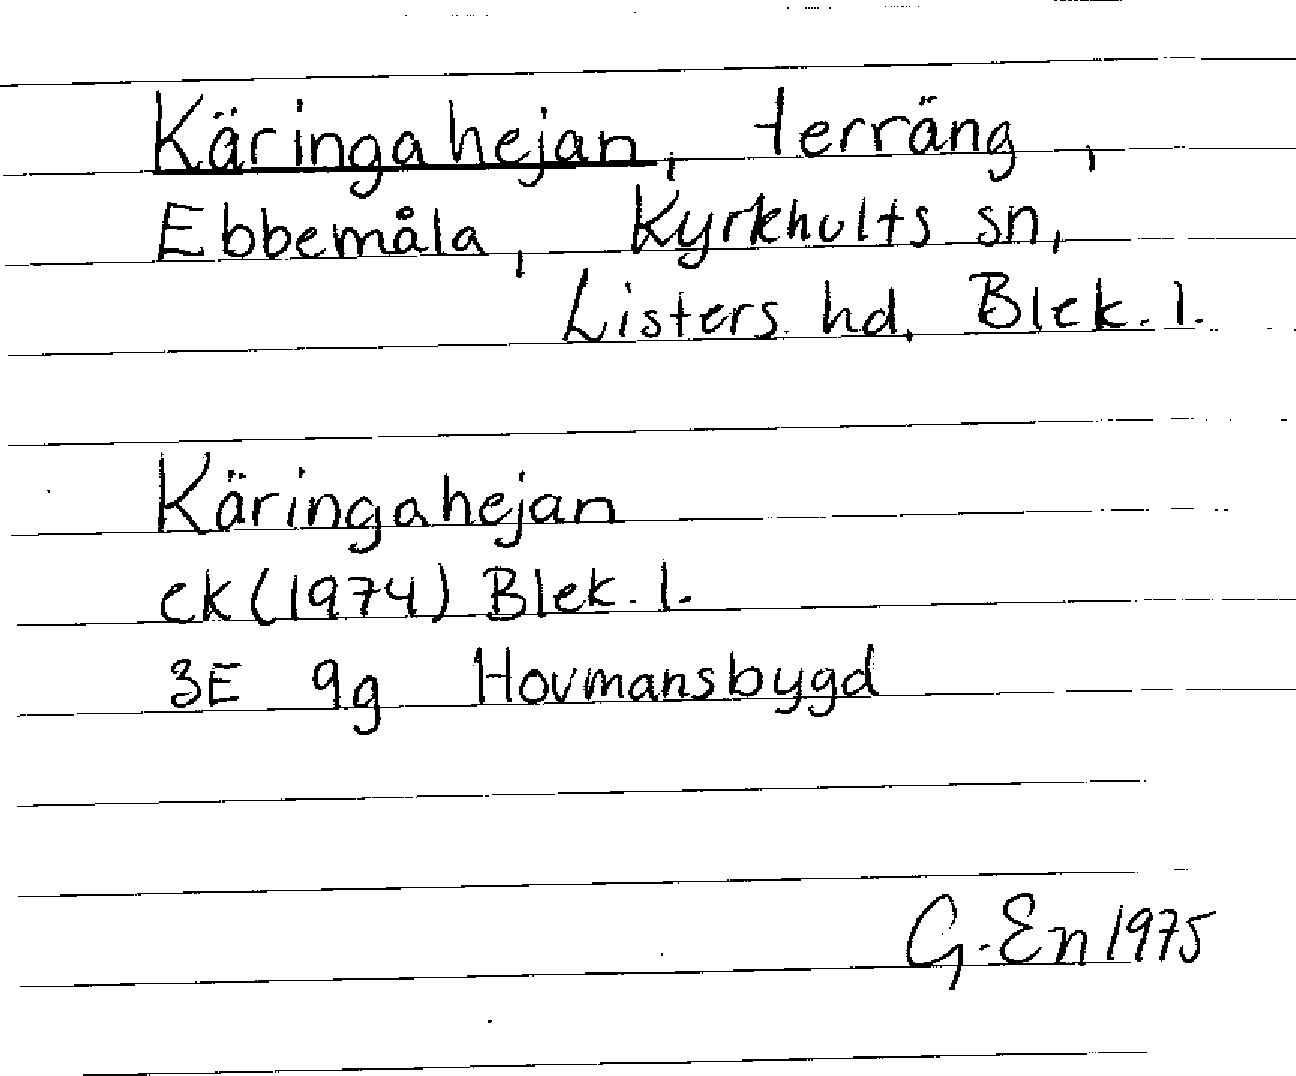 Käringahejan, terräng,
Ebbemåla, Kyrkhults sn,
Listers hd, Blek. l.
Käringahejan
ek (1974) Blek. l.
3E 9g Hovmansbygd
G. En 1975